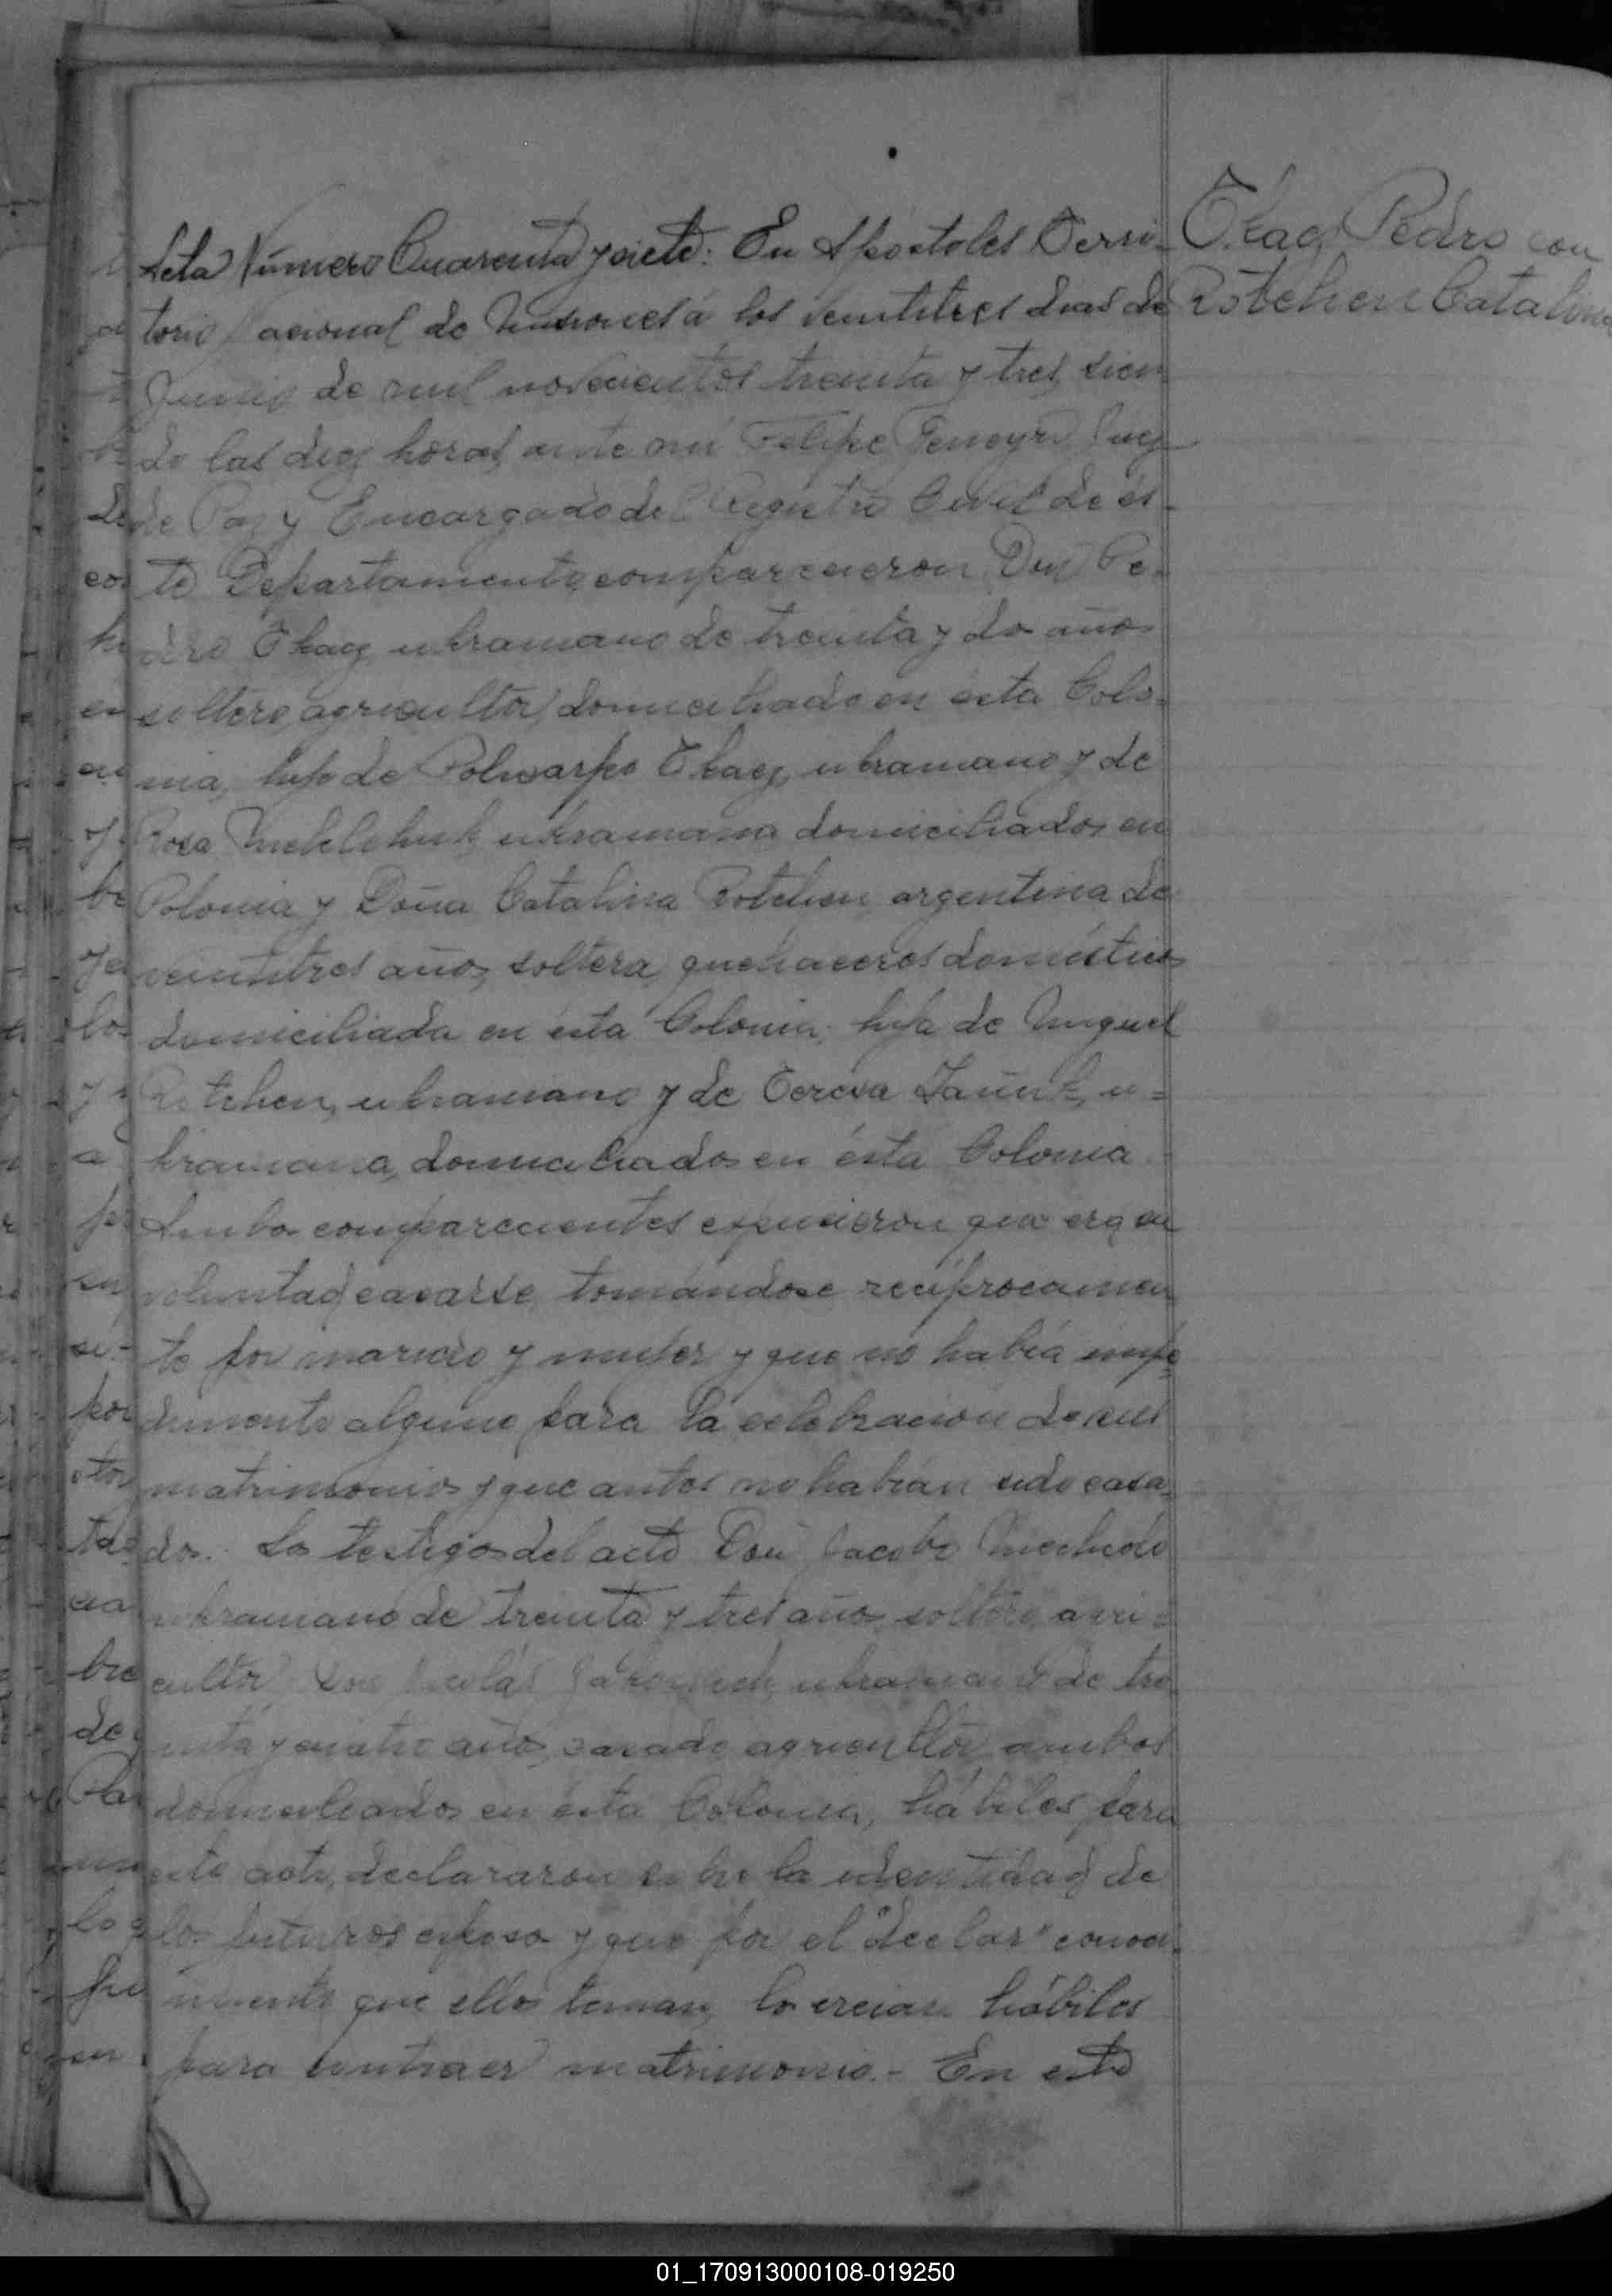 Acta Número Cuarenta y siete: En Apóstoles Terri-
torio Nacional de Misiones á los veintitres dias de
Junio de mil novecientos treinta y tres, sien
do las diez horas, ante mí Felipe Juez
de Paz y Encargado del Registro Civil de és-
te Departamento, comparecieron Don Pe-
dro Tkacz, ukraniano de treinta y dos años
soltero, agricultor, domiciliado en ésta Colo-
nia, hijo de Policarpo Tkacz, ukraniano y de
Rosa ukraniana domiciliados en
Polonia y Doña Catalina Rotchen argentina de
veintitres años, soltera, quehaceres domésticos
domiciliada en ésta Colonia, hija de Miguel
Rotchen, ukraniano y de Teresa u=
kraniana, domiciliados en ésta Colonia
Ambos comparecientes expusieron que era su
voluntad casarse, tomándose recíprocamen
te por marido y mujer y que no había impe
dimento alguno para la celebración de sus
matrimonios y que antes no habían sido casa-
dos.- Los testigos del acto Don Jacobo
ukraniano de treinta y tres años, soltero, agri=
cultor, Don Nicolás ukraniano de tre
inta y cuatro años, casado, agricultor, ambos
domiciliados en ésta Colonia, hábiles para
este acto, declararon sobre la identidad de
los futuros esposos y que por el "declar" conoci-
miento que ellos tenian, los creian hábiles
para contraer matrimonio.- En este
Tkacz Pedro con
Rotchen Catalina
01_170913000108-019250